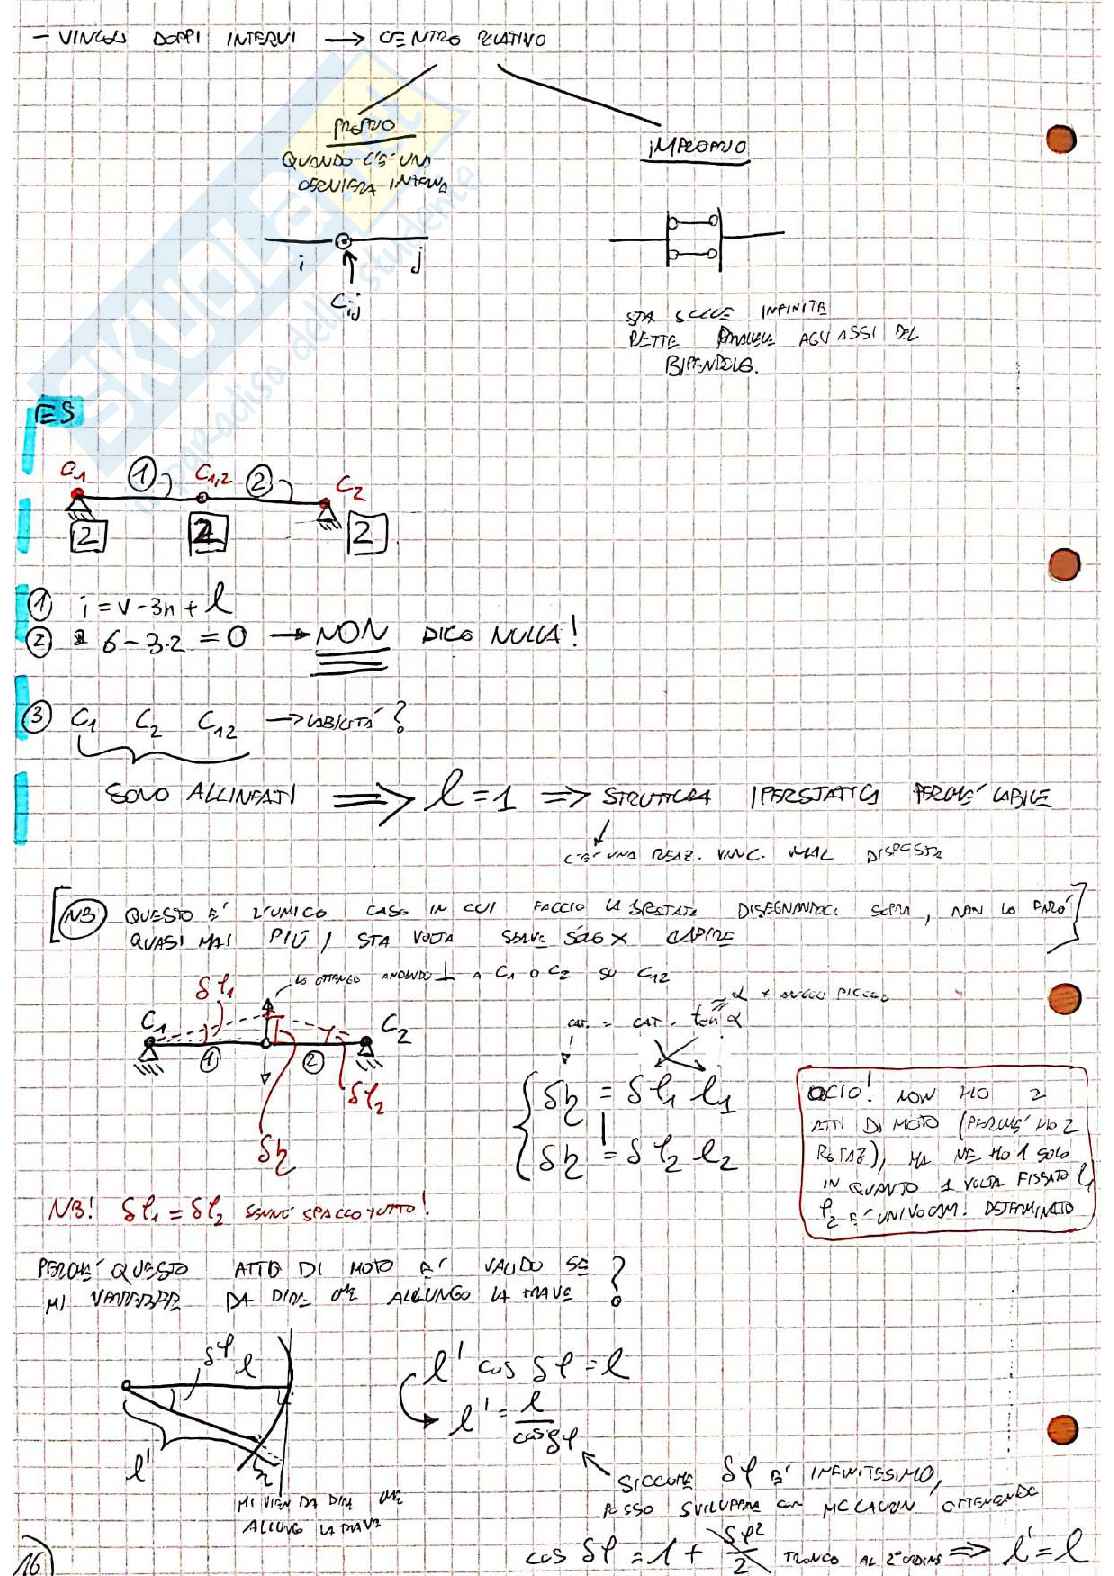 - VINCOLI DOPPI INTERNI → CENTRO RELATIVO
PROPRIO
QUANDO C'È UNA
CERNIERA INTERNA
IMPROPRIO
i j
Cij
STA SULLE INFINITE
RETTE PARALLELE AGLI ASSI DEL
BIPENDOLO.
ES
C1 ① C1,2 ② C2
2 2 2
① i = v - 3n + l
② 6 - 3·2 = 0 → NON DICO NULLA!
③ C1 C2 C12 → LABILITÀ?
SONO ALLINEATI ⇒ l = 1 ⇒ STRUTTURA IPERSTATICA PERCHÉ LABILE
C'È UNA REAZ. VINC. MAL DISPOSTA
[NB QUESTO È L'UNICO CASO IN CUI FACCIO LA SPOSTATA DISEGNANDOCI SOPRA, NON LO FARÒ
QUASI MAI PIÙ, STA VOLTA SERVE SOLO X CAPIRE]
δφ1
LO OTTENGO ANDANDO ⊥ A C1 O C2 SU C12
C1 ① ② C2
δφ2
δη
α + ANGOLO PICCOLO
CAT. = CAT · tan α
δη = δφ1 l1
δη = δφ2 l2
OCIO! NON HO 2
ATTI DI MOTO (PERCHÉ HO 2
ROTAZ), MA NE HO 1 SOLO
IN QUANTO 1 VOLTA FISSATO φ1
φ2 È UNIVOCAM. DETERMINATO
NB! δφ1 = δφ2 SENNÒ SPACCO TUTTO!
PERCHÉ QUESTO ATTO DI MOTO È VALIDO SE
MI VERREBBE DA DIRE CHE ALLUNGO LA TRAVE ?
δφ l
l'
η
MI VIEN DA DIRE CHE
ALLUNGO LA TRAVE
l' cos δφ = l
l' = l / cos δφ
SICCOME δφ È INFINITESIMO,
POSSO SVILUPPARE CON MCLAURIN OTTENENDO
cos δφ = 1 + δφ²/2 TRONCO AL 2° ORDINE ⇒ l' = l
16
SKUOLA.it
paradiso dello studente